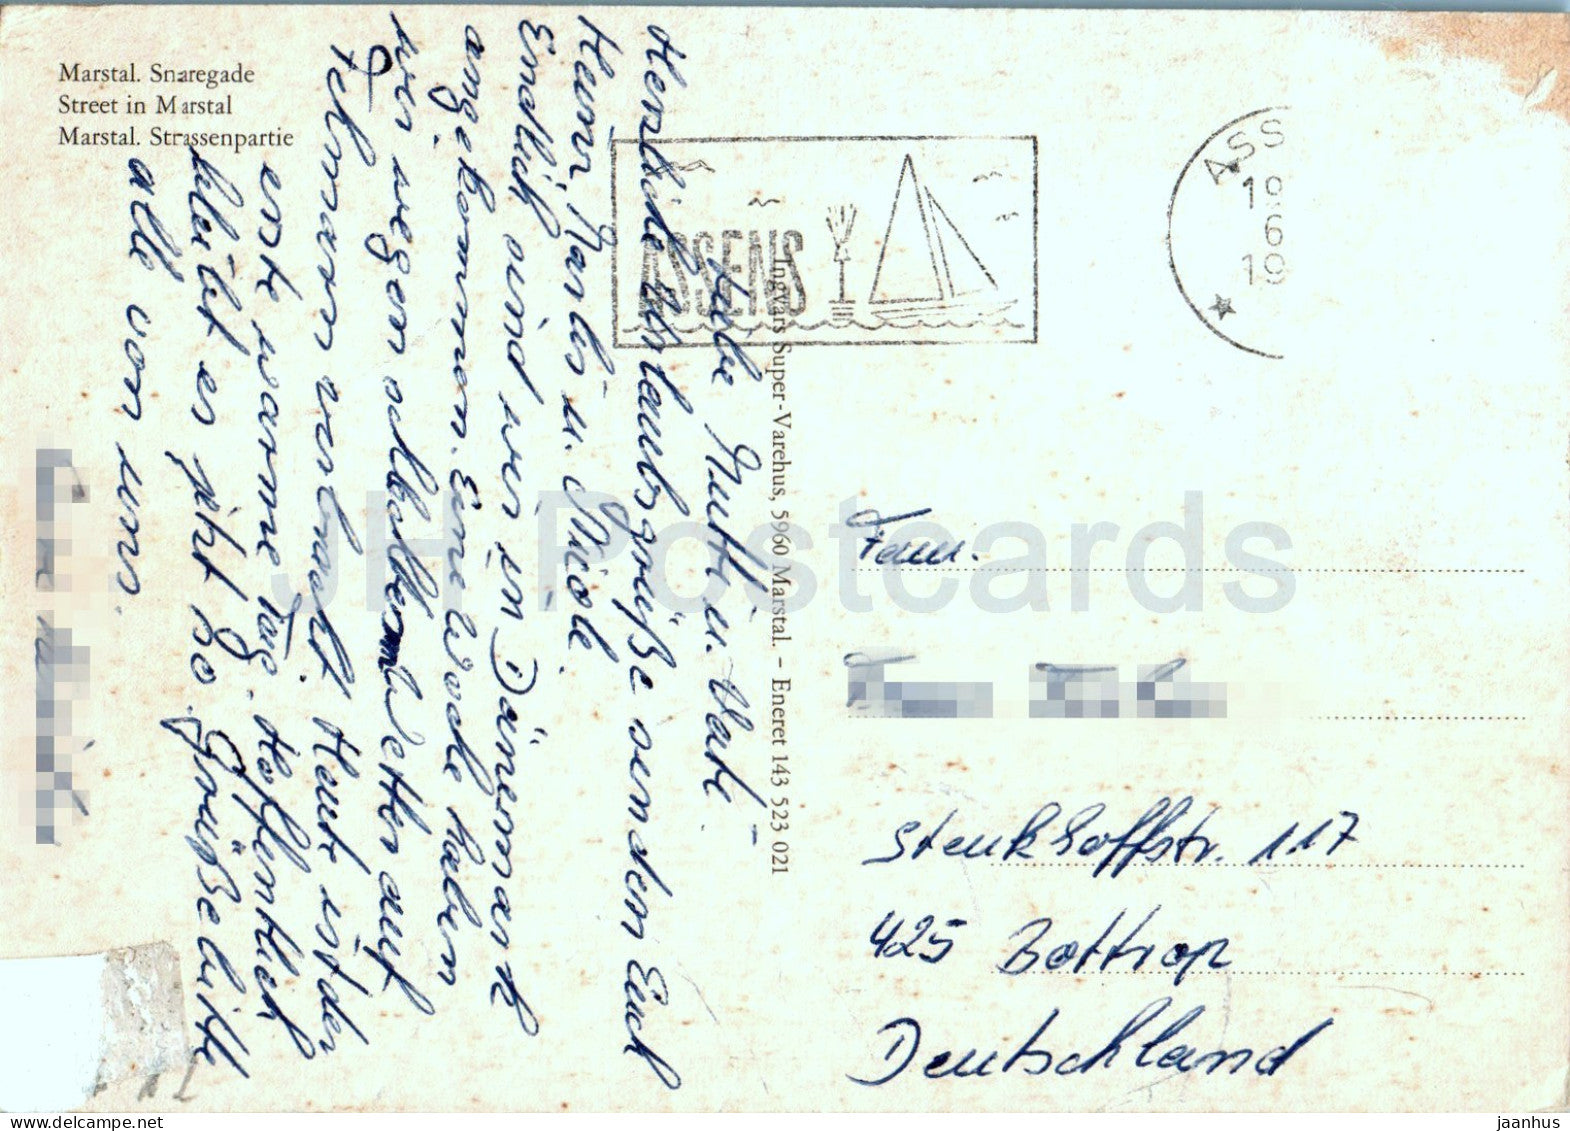 Marstal. Snaregade
Street in Marstal
Marstal. Strassenpartie
Liebe Mutti u. Vati
Herzliche Urlaubsgrüße senden Euch
Heinz, Marlis u. Nicole.
Endlich sind wir in Dänemark
angekommen. Eine Woche haben
wir wegen schlechtem Wetter auf
Fehmarn verbracht. Heute ist der
erste warme Tag. Hoffentlich
bleibt es jetzt so. Grüße bitte
alle von uns.
Ingvars Super-Varehus, 5960 Marstal. - Eneret 143 523 021
ASSENS
ASS
19
6
19
Fam.
Stenkhoffstr. 117
425 Bottrop
Deutschland
JH Postcards
www.delcampe.net
jaanhus